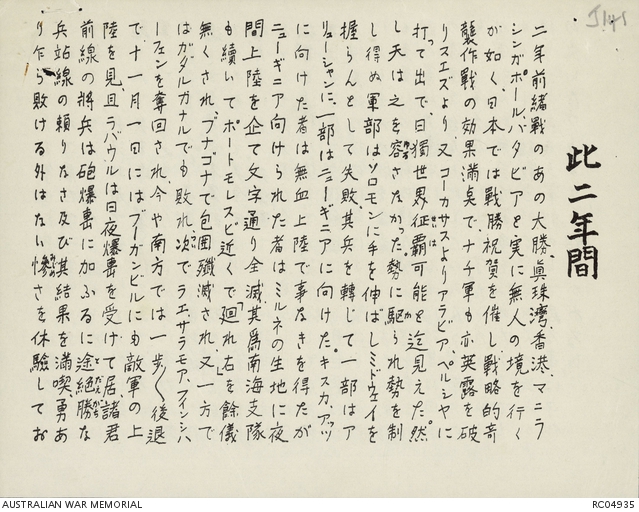 此二年間
二年前緒戦のあの大勝、眞珠湾、香港、マニラ
シンガポール、バタビアを実に無人の境を行く
が如く、日本では戦勝祝賀を催し戦略的奇
襲作戦の効果満点でナチ軍も亦英露を破
りスエズより、又コーカサスよりアラビア、ペルシヤに
打って出で、日獨世界征覇可能と迄見えた。然
し天は之を容さなかった勢に駆られ勢を制
し得ぬ軍部はソロモンに手を伸ばしミドウェイを
握らんとして失敗、其兵を轉じて一部はア
リューシャンに、一部はニューギニアに向けた。キスカ、アッツ
に向けた者は無血上陸で事なきを得たが
ニューギニア向けられた者はミルネの生地に夜
間上陸を企て文字通り全滅其爲南海支隊
も續いてポートモレスビ近くで「廻れ右」を餘儀
無くされ、ブナゴナで包囲殲滅され、又一方で
はガダルカナルでも敗れ、次でラエ、サラモア、フインシハ
ーフェンを奪回され今や南方では一歩〱後退
で十一月一日にはブーガンビルにも敵軍の上
陸を見、且ラバウルは日夜爆撃を受けて居、諸君
前線の将兵は砲爆撃に加ふるに途絶勝な
兵站線の頼りなさ及び其結果を満喫、勇あ
り乍ら敗ける外はない惨さを体験してお
AUSTRALIAN WAR MEMORIAL
RC04935